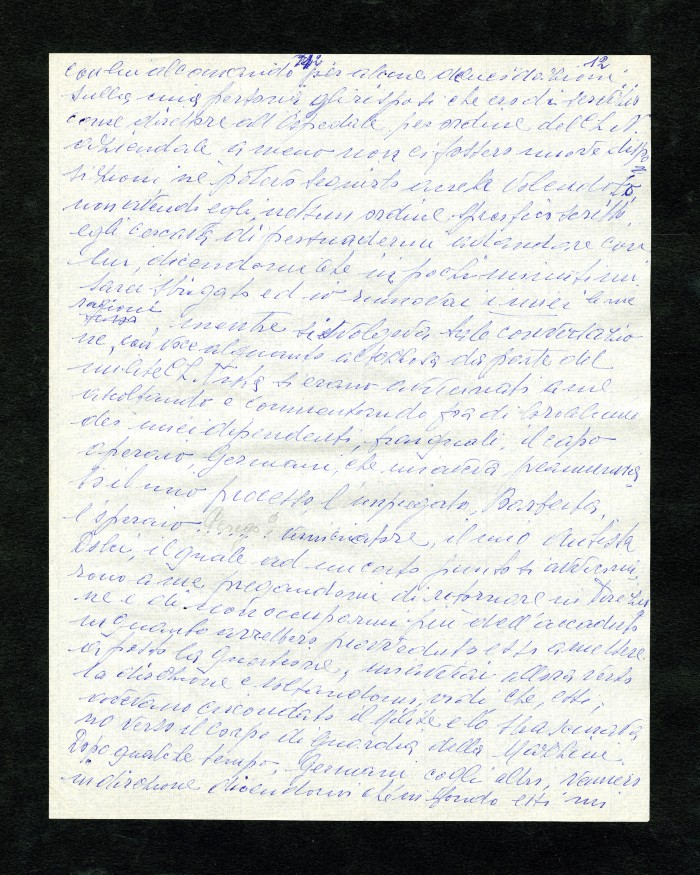 712 12
con lui al comando per alcune delucidazioni
sulla mia persona gli risposi che ero di servizio
come direttore all'Ospedale per ordine del CLN
aziendale a meno non ci fossero nuove dispo
sizioni nè potevo seguirlo anche volendo
non avendo egli, nessun ordine specifico scritto,
egli cercava di persuadermi ad andare con
lui, dicendomi che in pochi minuti mi
sarei sbrigato ed io rinnovai i miei
razioni, mentre si svolgeva tale conversazio
ne, con voce alquanto alterata da parte del
milite si erano avvicinati a me
ascoltando e commentando fra di loro alcuni
dei miei dipendenti, fra i quali, il capo
operaio, Germani, che mi aveva preannuncia
to il mio processo l'impiegato, Barberta,
l'operaio verniciatore, il mio autista
Dolci, il quale ad un certo punto si avvicina
rono a me pregandomi di ritornare in Direzio
ne e di non occuparmi più dell'accaduto
in quanto avrebbero provveduto essi a mettere
a posto la questione, mi avviai allora verso
la direzione e voltandomi, vidi che, essi,
avevano circondato il milite e lo trascinava
no verso il corpo di guardia della
Dopo qualche tempo, Germani cogli altri, vennero
in direzione dicendomi che in fondo essi mi